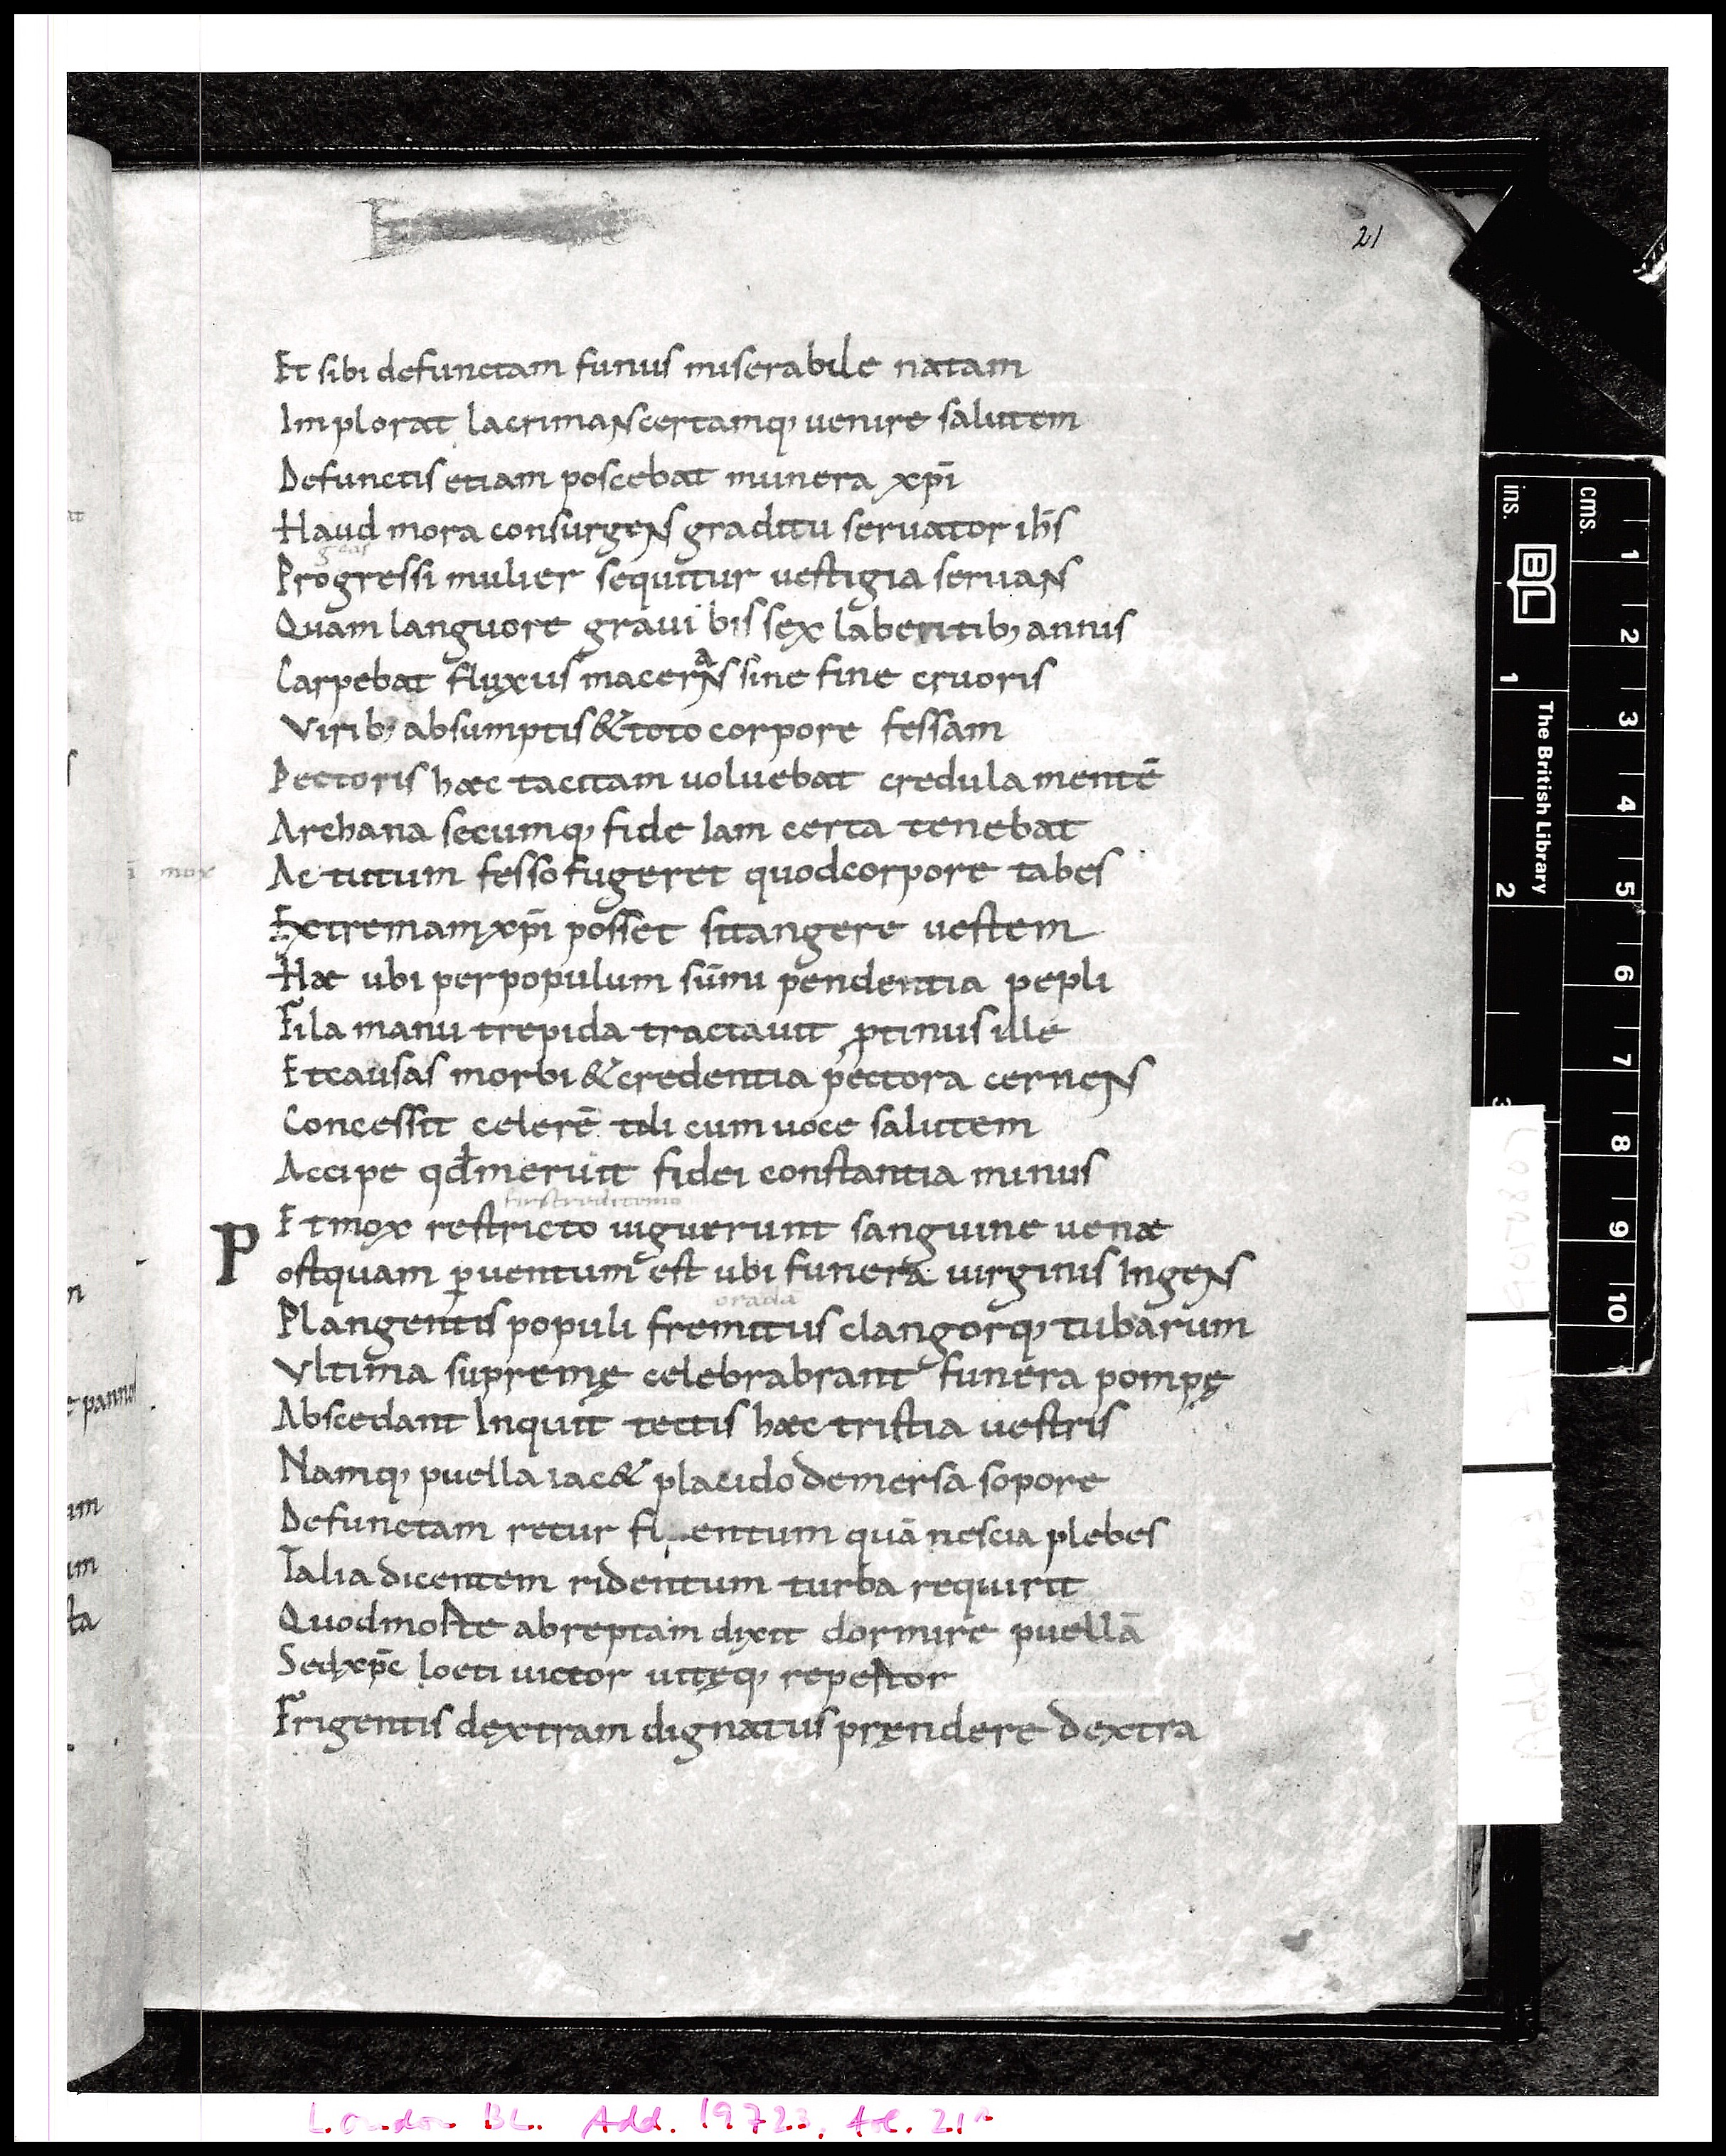 21
Et sibi defunctam funus miserabile natam
Implorat lacrimans certamq; uenire salutem
Defunctis etiam poscebat munera xp̄i
Haud mora consurgens graditu seruator ih̄s
Progressi mulier sequitur uestigia seruans
Quam languore graui bis sex labentib; annis
Carpebat fluxus macerans sine fine cruoris
Virib; absumptis & toto corpore fessam
Pectoris hæc tacitam uoluebat credula mentē
Archana secumq; fide Iam certa tenebat
mox
Actutum fesso fugeret quod corpore tabes
Extremam xp̄i posset si tangere uestem
Hæ ubi per populum sūmi pendentia pepli
Fila manu trepida tractauit ꝓtinus ille
Et causas morbi & credentia pectora cernens
Concessit celerē tali cum uoce salutem
Accipe qđ meruit fidei constantia munus
Et mox restricto uiguerunt sanguine uenæ
Postquam ꝑuentum est ubi funera uirginis Ingens
Plangentis populi fremitus clangorq; tubarum
Vltima supremę celebrabrant funera pompę
Abscedant Inquit tectis hæc tristia uestris
Namq; puella iac& placido demersa sopore
Defunctam retur entum quā nescia plebes
Talia dicentem ridentum turba requirit
Quod morte abreptam dixit dormire puellā
Sed xp̄c loeti uictor uitęq; repertor
Frigentis dextram dignatus pręndere dextra
cms.
1
2
3
4
5
6
7
8
9
10
ins.
BL
1
2
3
The British Library
London BL. Add. 19723, fol. 21r